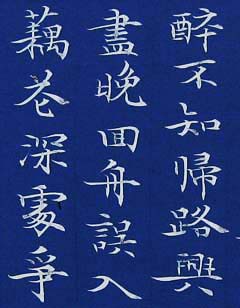 醉不知歸路興
盡晚回舟誤入
藕花深處爭